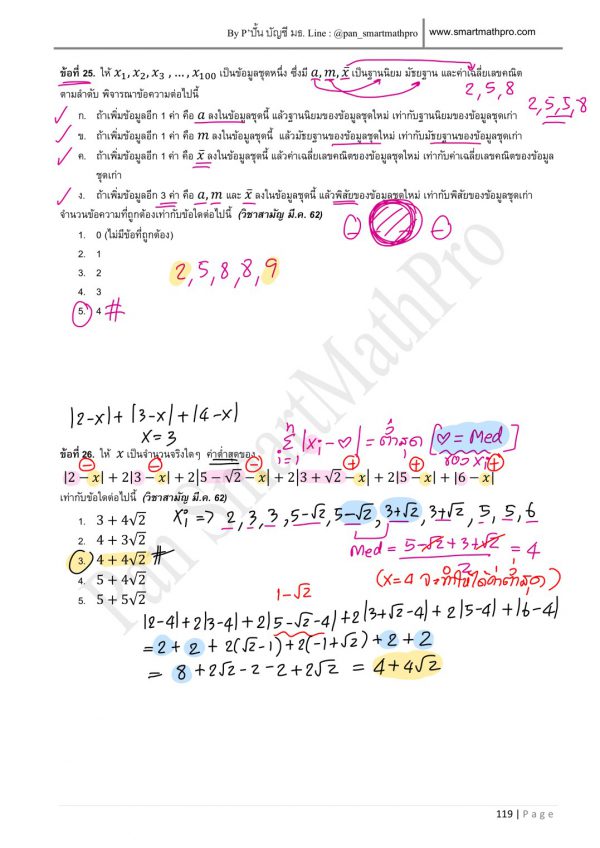 By P'ปั้น บัญชี มธ. Line : @pan_smartmathpro www.smartmathpro.com
ข้อที่ 25. ให้ x₁, x₂, x₃ , … , x₁₀₀ เป็นข้อมูลชุดหนึ่ง ซึ่งมี a, m, x̄ เป็นฐานนิยม มัธยฐาน และค่าเฉลี่ยเลขคณิต
ตามลำดับ พิจารณาข้อความต่อไปนี้
2, 5, 8
2, 5, 5, 8
ก. ถ้าเพิ่มข้อมูลอีก 1 ค่า คือ a ลงในข้อมูลชุดนี้ แล้วฐานนิยมของข้อมูลชุดใหม่ เท่ากับฐานนิยมของข้อมูลชุดเก่า
ข. ถ้าเพิ่มข้อมูลอีก 1 ค่า คือ m ลงในข้อมูลชุดนี้ แล้วมัธยฐานของข้อมูลชุดใหม่ เท่ากับมัธยฐานของข้อมูลชุดเก่า
ค. ถ้าเพิ่มข้อมูลอีก 1 ค่า คือ x̄ ลงในข้อมูลชุดนี้ แล้วค่าเฉลี่ยเลขคณิตของข้อมูลชุดใหม่ เท่ากับค่าเฉลี่ยเลขคณิตของข้อมูล
ชุดเก่า
ง. ถ้าเพิ่มข้อมูลอีก 3 ค่า คือ a, m และ x̄ ลงในข้อมูลชุดนี้ แล้วพิสัยของข้อมูลชุดใหม่ เท่ากับพิสัยของข้อมูลชุดเก่า
จำนวนข้อความที่ถูกต้องเท่ากับข้อใดต่อไปนี้ (วิชาสามัญ มี.ค. 62)
1. 0 (ไม่มีข้อที่ถูกต้อง)
2. 1
3. 2
4. 3
5. 4 #
2, 5, 8, 8, 9
|2-x| + |3-x| + |4-x|
x = 3
ข้อที่ 26. ให้ x เป็นจำนวนจริงใดๆ ค่าต่ำสุดของ
n Σ i=1 |xᵢ - ♡| = ต่ำสุด [♡ = Med]
ของ xᵢ
|2 − x| + 2|3 − x| + 2|5 − √2 − x| + 2|3 + √2 − x| + 2|5 − x| + |6 − x|
เท่ากับข้อใดต่อไปนี้ (วิชาสามัญ มี.ค. 62)
1. 3 + 4√2
2. 4 + 3√2
3. 4 + 4√2 #
4. 5 + 4√2
5. 5 + 5√2
xᵢ => 2, 3, 3, 5-√2, 5-√2, 3+√2, 3+√2, 5, 5, 6
Med = 5-√2+3+√2 / 2 = 4
(x=4 จะทำให้ได้ค่าต่ำสุด)
1-√2
|2-4|+2|3-4|+2|5-√2-4|+2|3+√2-4|+2|5-4|+|6-4|
= 2 + 2 + 2(√2-1) + 2(-1+√2) + 2 + 2
= 8 + 2√2 - 2 - 2 + 2√2 = 4 + 4√2
Pan SmartMathPro
119 | Page